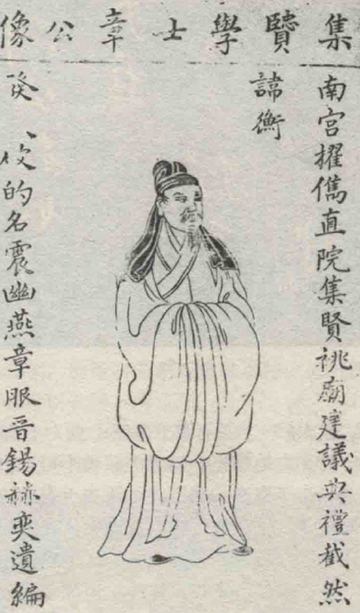 集賢學士章公像
諱衡
南宫擢儁直院集賢祧廟建議典禮截然
發 的名震幽燕章服晉錫赫奕遺編